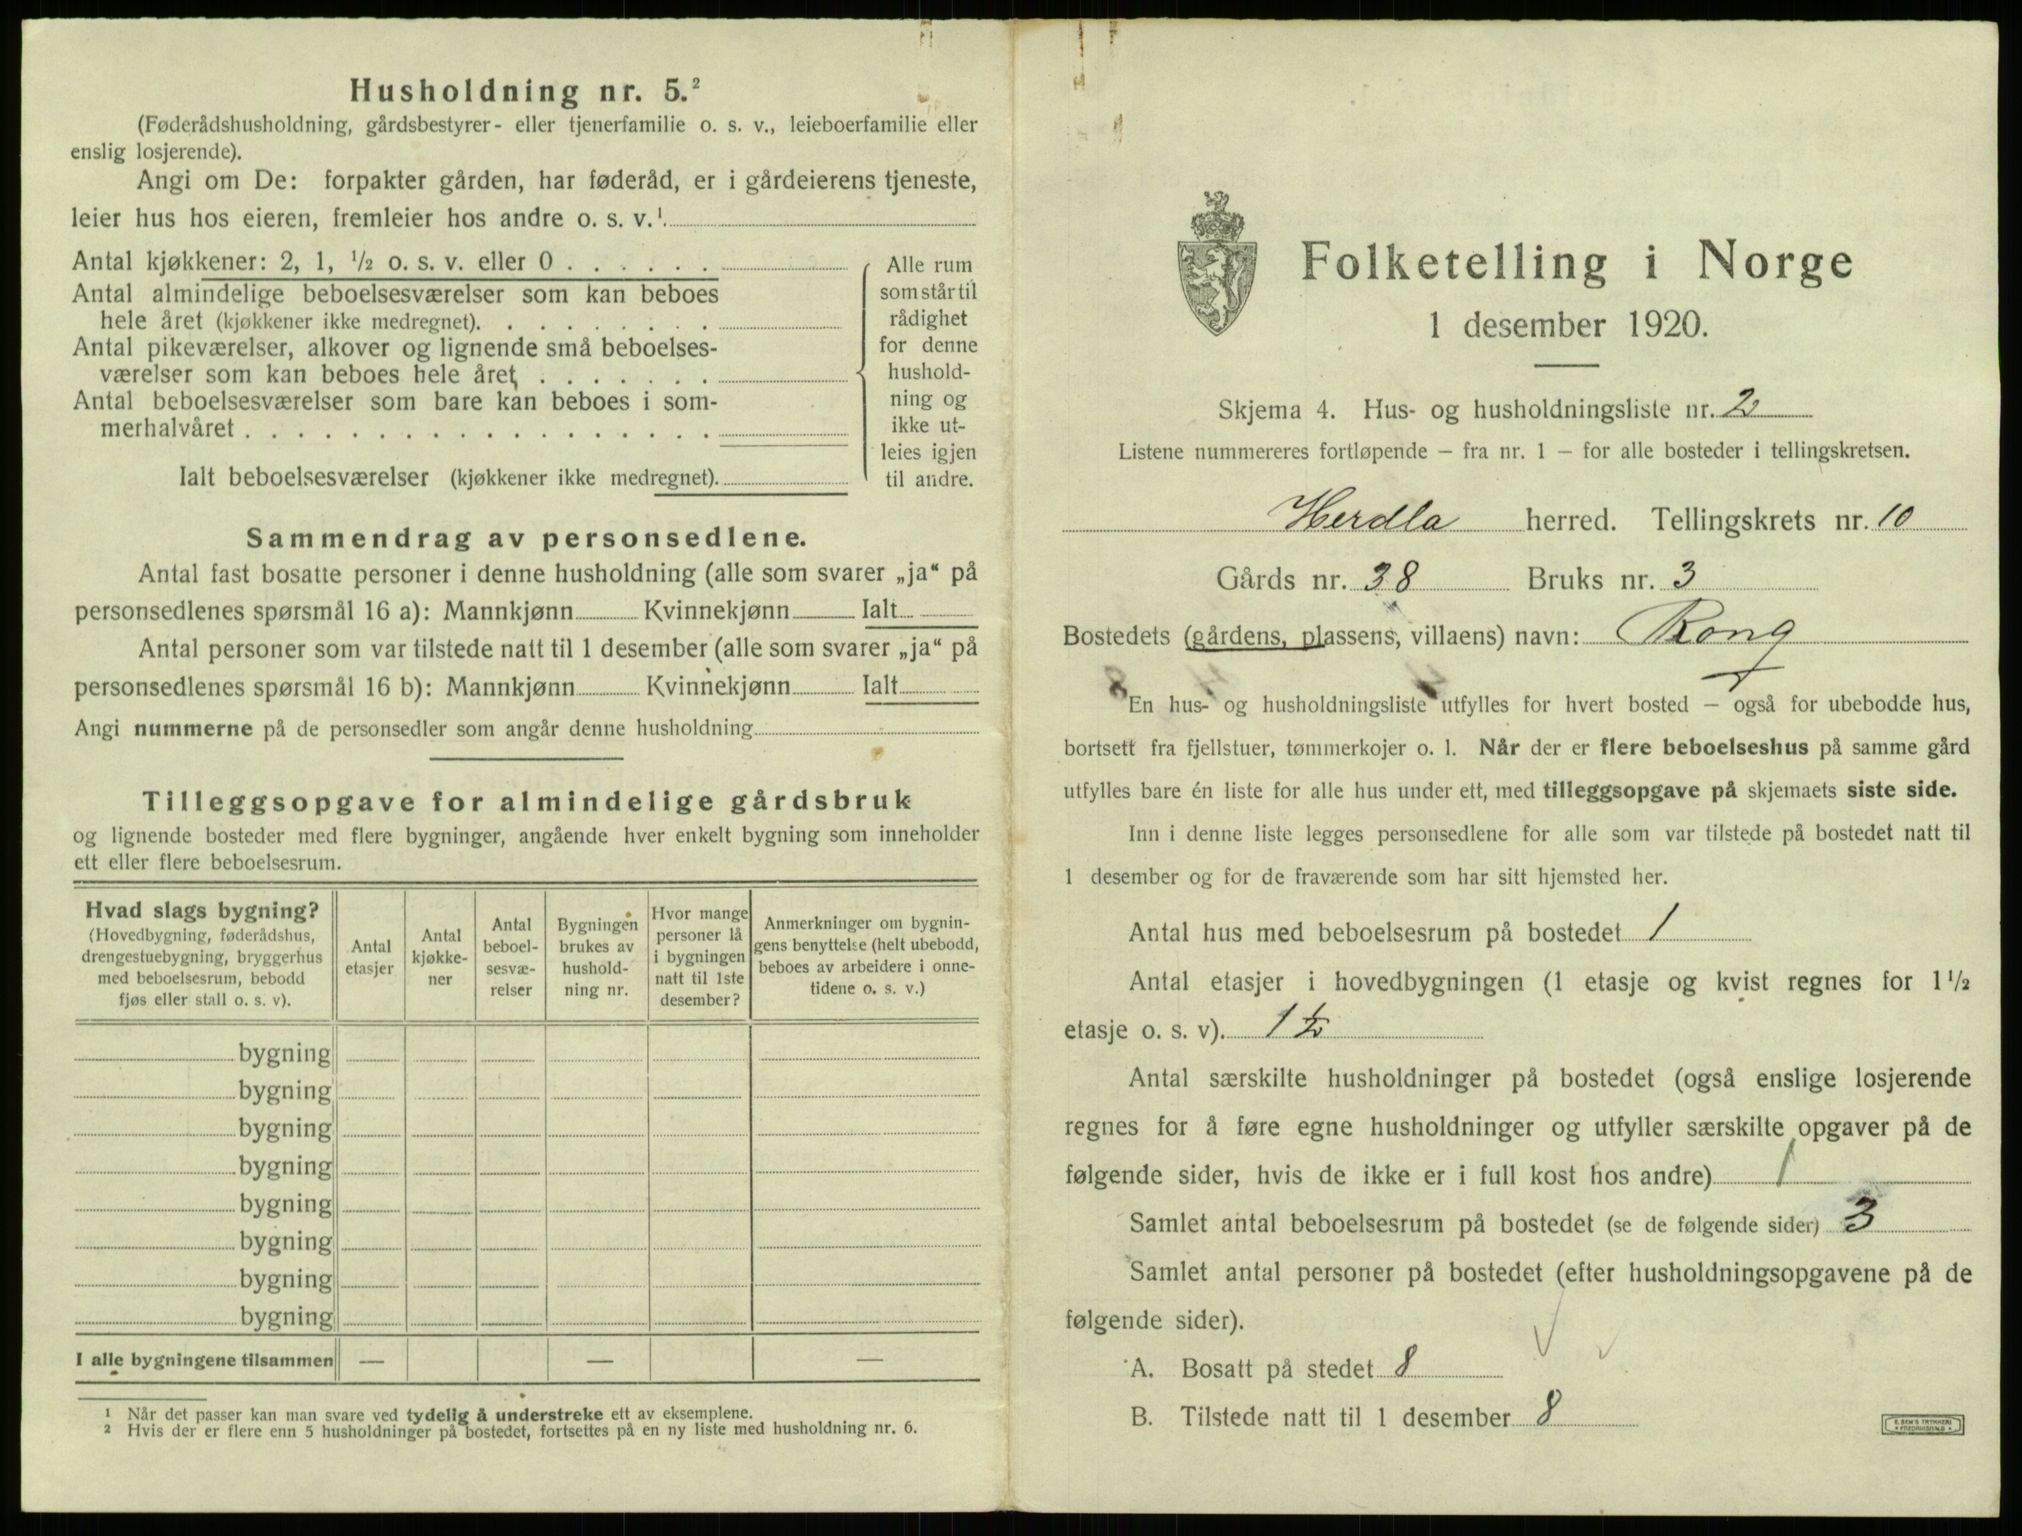 Husholdning nr. 5.²
(Føderådshusholdning, gårdsbestyrer- eller tjenerfamilie o. s. v., leieboerfamilie eller
enslig losjerende).
Angi om De: forpakter gården, har føderåd, er i gårdeierens tjeneste,
leier hus hos eieren, fremleier hos andre o. s. v.¹
Antal kjøkkener: 2, 1, ½ o. s. v. eller 0 . . . . . .
Antal almindelige beboelsesværelser som kan beboes
hele året (kjøkkener ikke medregnet). . . . . . . . .
Antal pikeværelser, alkover og lignende små beboelses-
værelser som kan beboes hele året, . . . . . . .
Antal beboelsesværelser som bare kan beboes i som-
merhalvåret . . . . . . . . . . . . . . . . . .
Ialt beboelsesværelser (kjøkkener ikke medregnet).
Alle rum
som står til
rådighet
for denne
hushold-
ning og
ikke ut-
leies igjen
til andre.
Sammendrag av personsedlene.
Antal fast bosatte personer i denne husholdning (alle som svarer „ja“ på
personsedlenes spørsmål 16 a): Mannkjønn Kvinnekjønn Ialt
Antal personer som var tilstede natt til 1 desember (alle som svarer „ja“ på
personsedlenes spørsmål 16 b): Mannkjønn Kvinnekjønn Ialt
Angi nummerne på de personsedler som angår denne husholdning
Tilleggsopgave for almindelige gårdsbruk
og lignende bosteder med flere bygninger, angående hver enkelt bygning som inneholder
ett eller flere beboelsesrum.
Hvad slags bygning?
(Hovedbygning, føderådshus,
drengestuebygning, bryggerhus
med beboelsesrum, bebodd
fjøs eller stall o. s. v).
Antal
etasjer
Antal
kjøkke-
ner
Antal
beboel-
sesvæ-
relser
Bygningen
brukes av
hushold-
ning nr.
Hvor mange
personer lå
i bygningen
natt til 1ste
desember?
Anmerkninger om bygnin-
gens benyttelse (helt ubebodd,
beboes av arbeidere i onne-
tidene o. s. v.)
bygning
bygning
bygning
bygning
bygning
bygning
bygning
bygning
I alle bygningene tilsammen — — —
¹ Når det passer kan man svare ved tydelig å understreke ett av eksemplene.
² Hvis der er flere enn 5 husholdninger på bostedet, fortsettes på en ny liste med husholdning nr. 6.
Folketelling i Norge
1 desember 1920.
Skjema 4. Hus- og husholdningsliste nr. 2
Listene nummereres fortløpende — fra nr. 1 — for alle bosteder i tellingskretsen.
Herdla herred. Tellingskrets nr. 10
Gårds nr. 38 Bruks nr. 3
Bostedets (gårdens, plassens, villaens) navn: Rong
En hus- og husholdningsliste utfylles for hvert bosted — også for ubebodde hus,
bortsett fra fjellstuer, tømmerkojer o. l. Når der er flere beboelseshus på samme gård
utfylles bare én liste for alle hus under ett, med tilleggsopgave på skjemaets siste side.
Inn i denne liste legges personsedlene for alle som var tilstede på bostedet natt til
1 desember og for de fraværende som har sitt hjemsted her.
Antal hus med beboelsesrum på bostedet 1
Antal etasjer i hovedbygningen (1 etasje og kvist regnes for 1½
etasje o. s. v). 1½
Antal særskilte husholdninger på bostedet (også enslige losjerende
regnes for å føre egne husholdninger og utfyller særskilte opgaver på de
følgende sider, hvis de ikke er i full kost hos andre) 1
Samlet antal beboelsesrum på bostedet (se de følgende sider) 3
Samlet antal personer på bostedet (efter husholdningsopgavene på de
følgende sider).
A. Bosatt på stedet 8
B. Tilstede natt til 1 desember 8